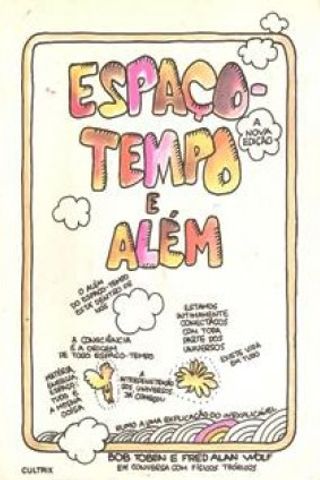 ESPAÇO-
TEMPO
E
ALÉM
A
NOVA
EDIÇÃO
O ALÉM
DO ESPAÇO-TEMPO
ESTÁ DENTRO DE
NÓS
ESTAMOS
INTIMAMENTE
CONECTADOS
COM TODA
PARTE DOS
UNIVERSOS
A CONSCIÊNCIA
É A ORIGEM
DE TODO ESPAÇO-TEMPO
EXISTE VIDA
EM TUDO
MATÉRIA,
ENERGIA,
ESPAÇO-
TUDO É
A MESMA
COISA
A
INTERPENETRAÇÃO
DOS UNIVERSOS
JÁ COMEÇOU
RUMO A UMA EXPLICAÇÃO DO INEXPLICÁVEL
BOB TOBEN E FRED ALAN WOLF
EM CONVERSA COM FÍSICOS TEÓRICOS
CULTRIX